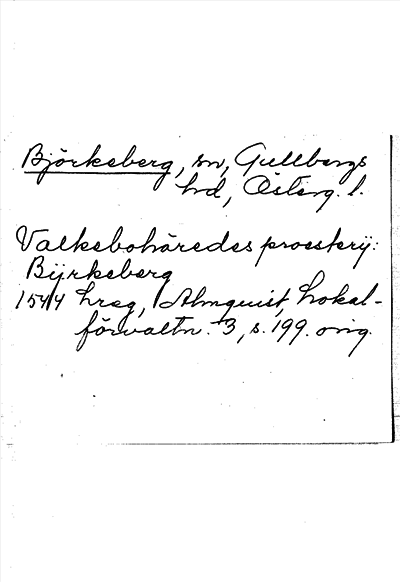 Björkeberg, sn, Gullbergs
hd, Österg. l.
Valkeboháredes proestery:
Byrkeberg
1544 hreg, Almquist, Lokal-
förvaltn. 3, s. 199. orig.